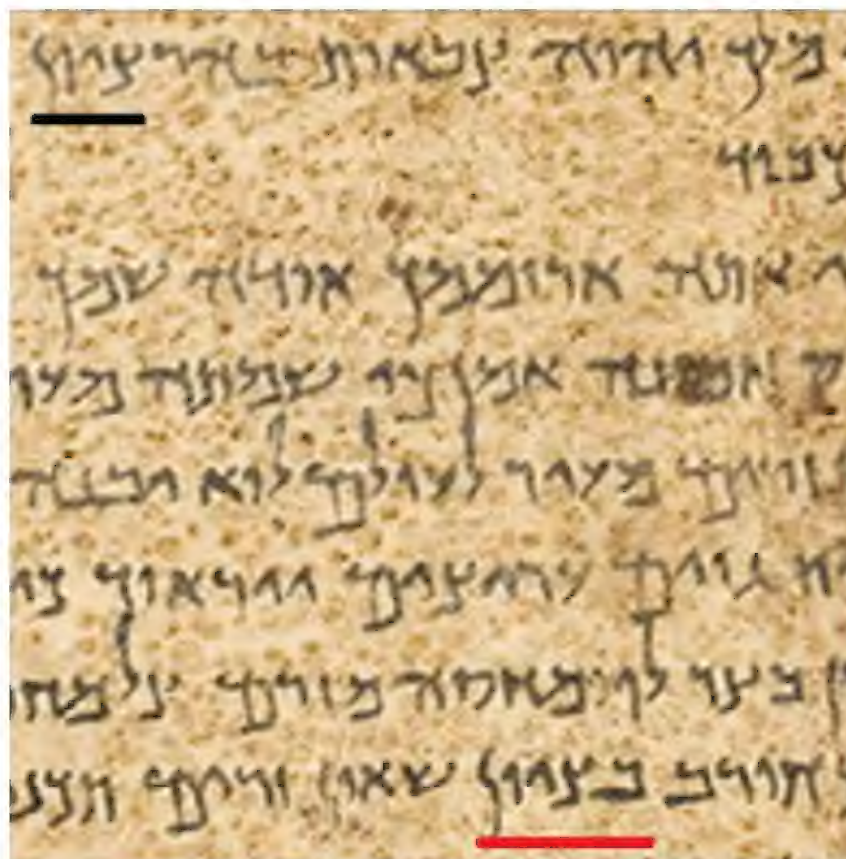 מלך יהוה צבאות בהר ציון
כבוד
אתה ארוממך אודה שמך
אמונה אמן שמתה מעיר
זרים מעיר לעולם לוא יבנה
גוים עריצים ייראוך
בצר לו מחסה מזרם צל
חורב בציון שאון זרים